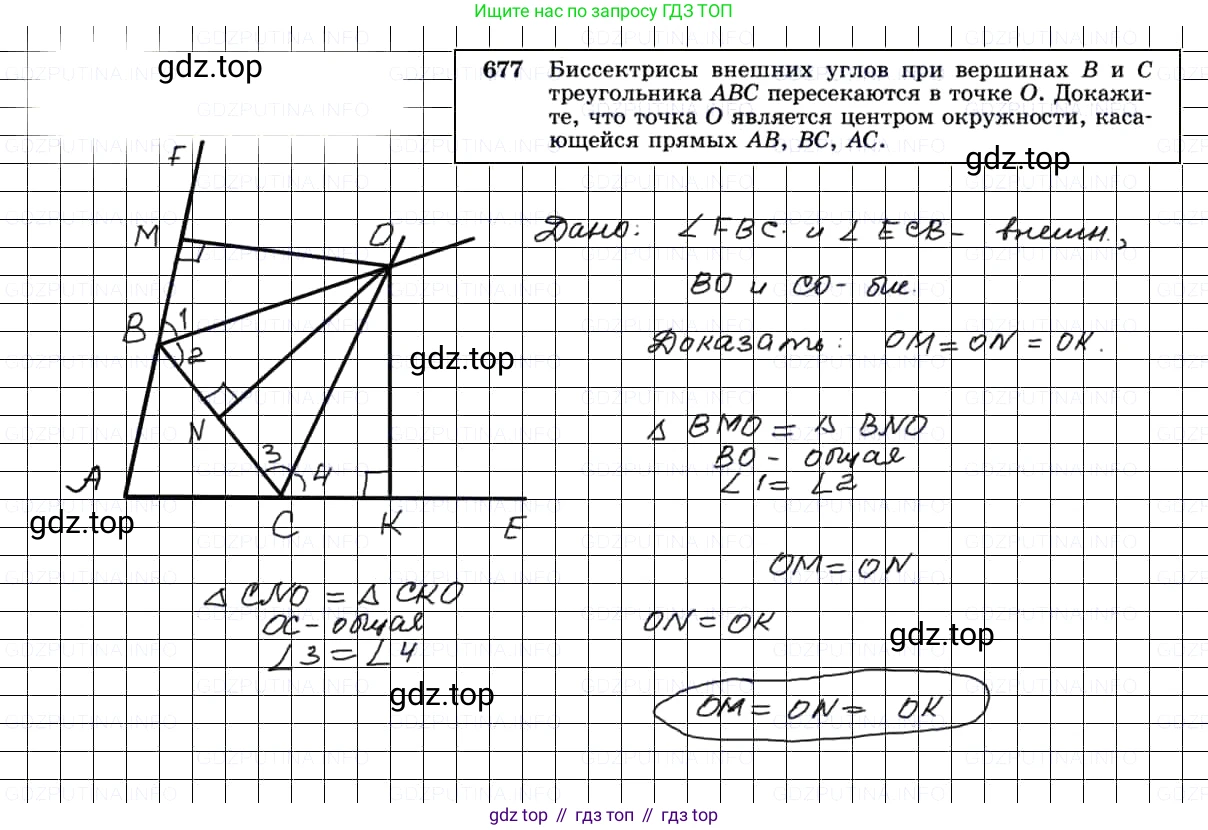 Ищите нас по запросу ГДЗ ТОП
gdz.top
677 Биссектрисы внешних углов при вершинах B и C
треугольника ABC пересекаются в точке O. Докажи-
те, что точка O является центром окружности, каса-
ющейся прямых AB, BC, AC.
gdz.top
F
M
O
Дано: ∠FBC и ∠ECB - внешн.,
BO и CO - бис.
B
1
2
Доказать: OM = ON = OK.
gdz.top
N
△ BMO = △ BNO
BO - общая
∠1 = ∠2
3
4
A
C
K
E
gdz.top
OM = ON
△ CNO = △ CKO
OC - общая
∠3 = ∠4
ON = OK
gdz.top
gdz.top
OM = ON = OK
gdz top // гдз топ // гдз top
GDZPUTINA.INFO